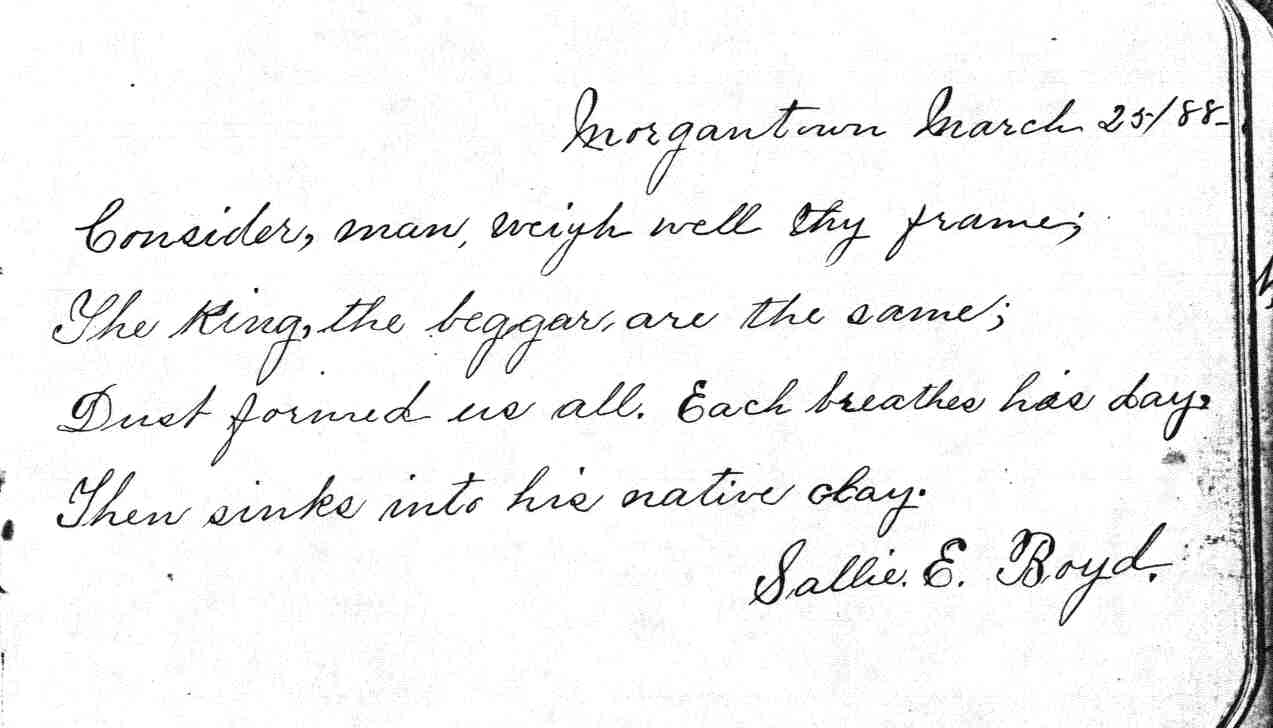 Morgantown March 25/88-
Consider, man, weigh well thy frame;
The King, the beggar, are the same;
Dust formed us all. Each breathes his day,
Then sinks into his native clay.
Sallie. E. Boyd.